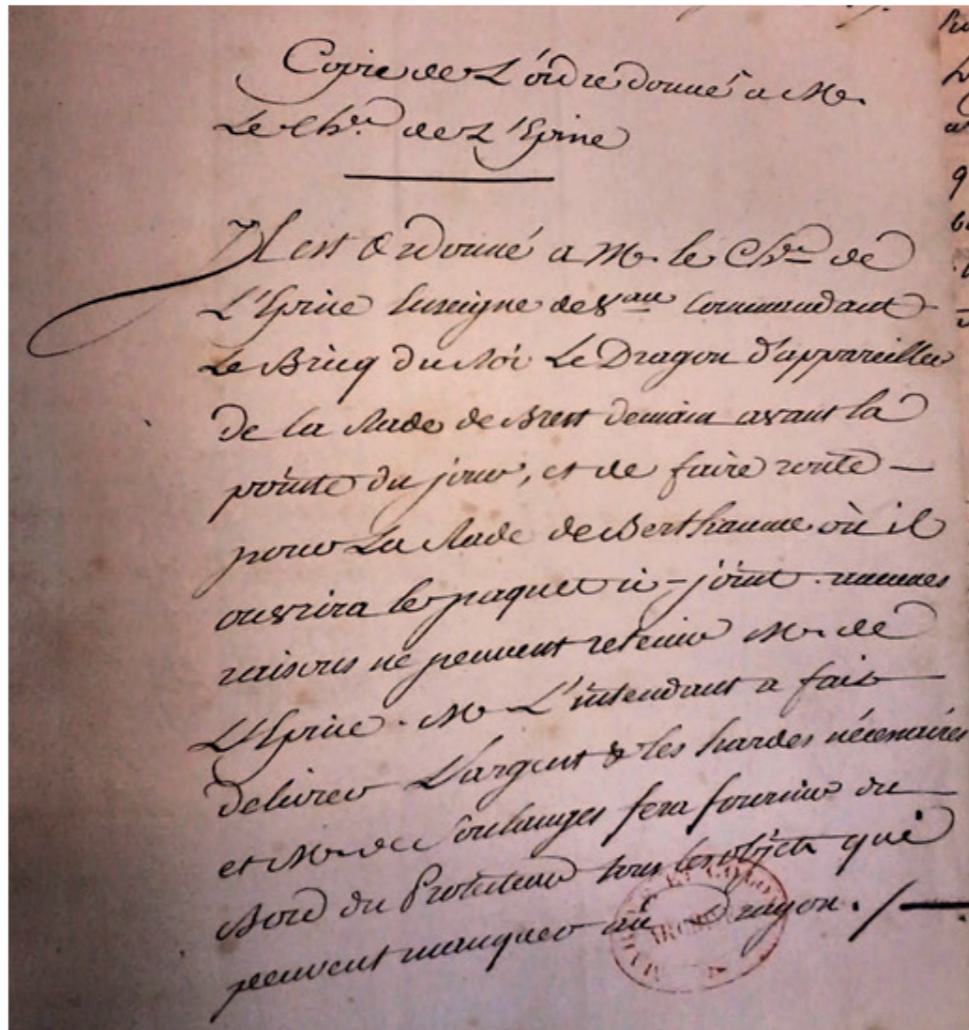 Copie de L'ordre donné a Mr.
Le Chr. de L'Epine
Il est Ordonné a Mr. le Chr. de
L'Epine Enseigne de Vau Commandant
Le Bricq du Roi Le Dragon d'appareiller
de la Rade de Brest demain avant la
pointe du jour, et de faire route –
pour La Rade de Berthaume où il
ouvrira le paquet ci-joint. nulles
raisons ne peuvent retenir Mr. de
L'Epine. Mr L'intendant a fait
delivrer L'argent & les hardes nécessaires
et Mr. de Soulanges fera fournir du
Bord du Protecteur tous les objets qui
peuvent manquer au Dragon. /